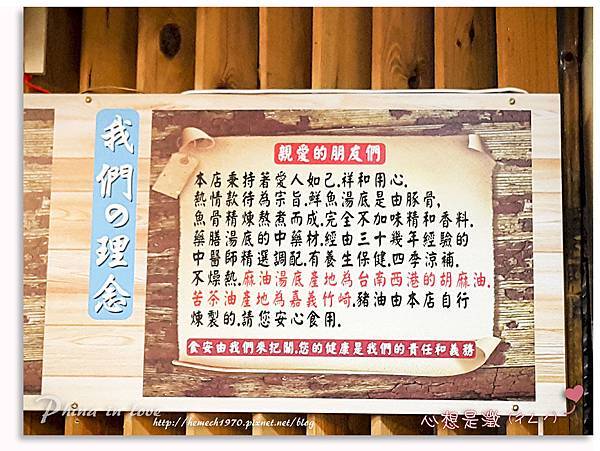 我們の理念
親愛的朋友們
本店秉持著愛人如己.祥和用心.
熱情款待為宗旨.鮮魚湯底是由豚骨,
魚骨精煉熬煮而成.完全不加味精和香料.
藥膳湯底的中藥材.經由三十幾年經驗的
中醫師精選調配.有養生保健.四季涼補.
不燥熱.麻油湯底產地為台南西港的胡麻油.
苦茶油產地為嘉義竹崎.豬油由本店自行
煉製的.請您安心食用.
食安由我們來把關.您的健康是我們的責任和義務
Phina in love
http://hemech1970.pixnet.net/blog